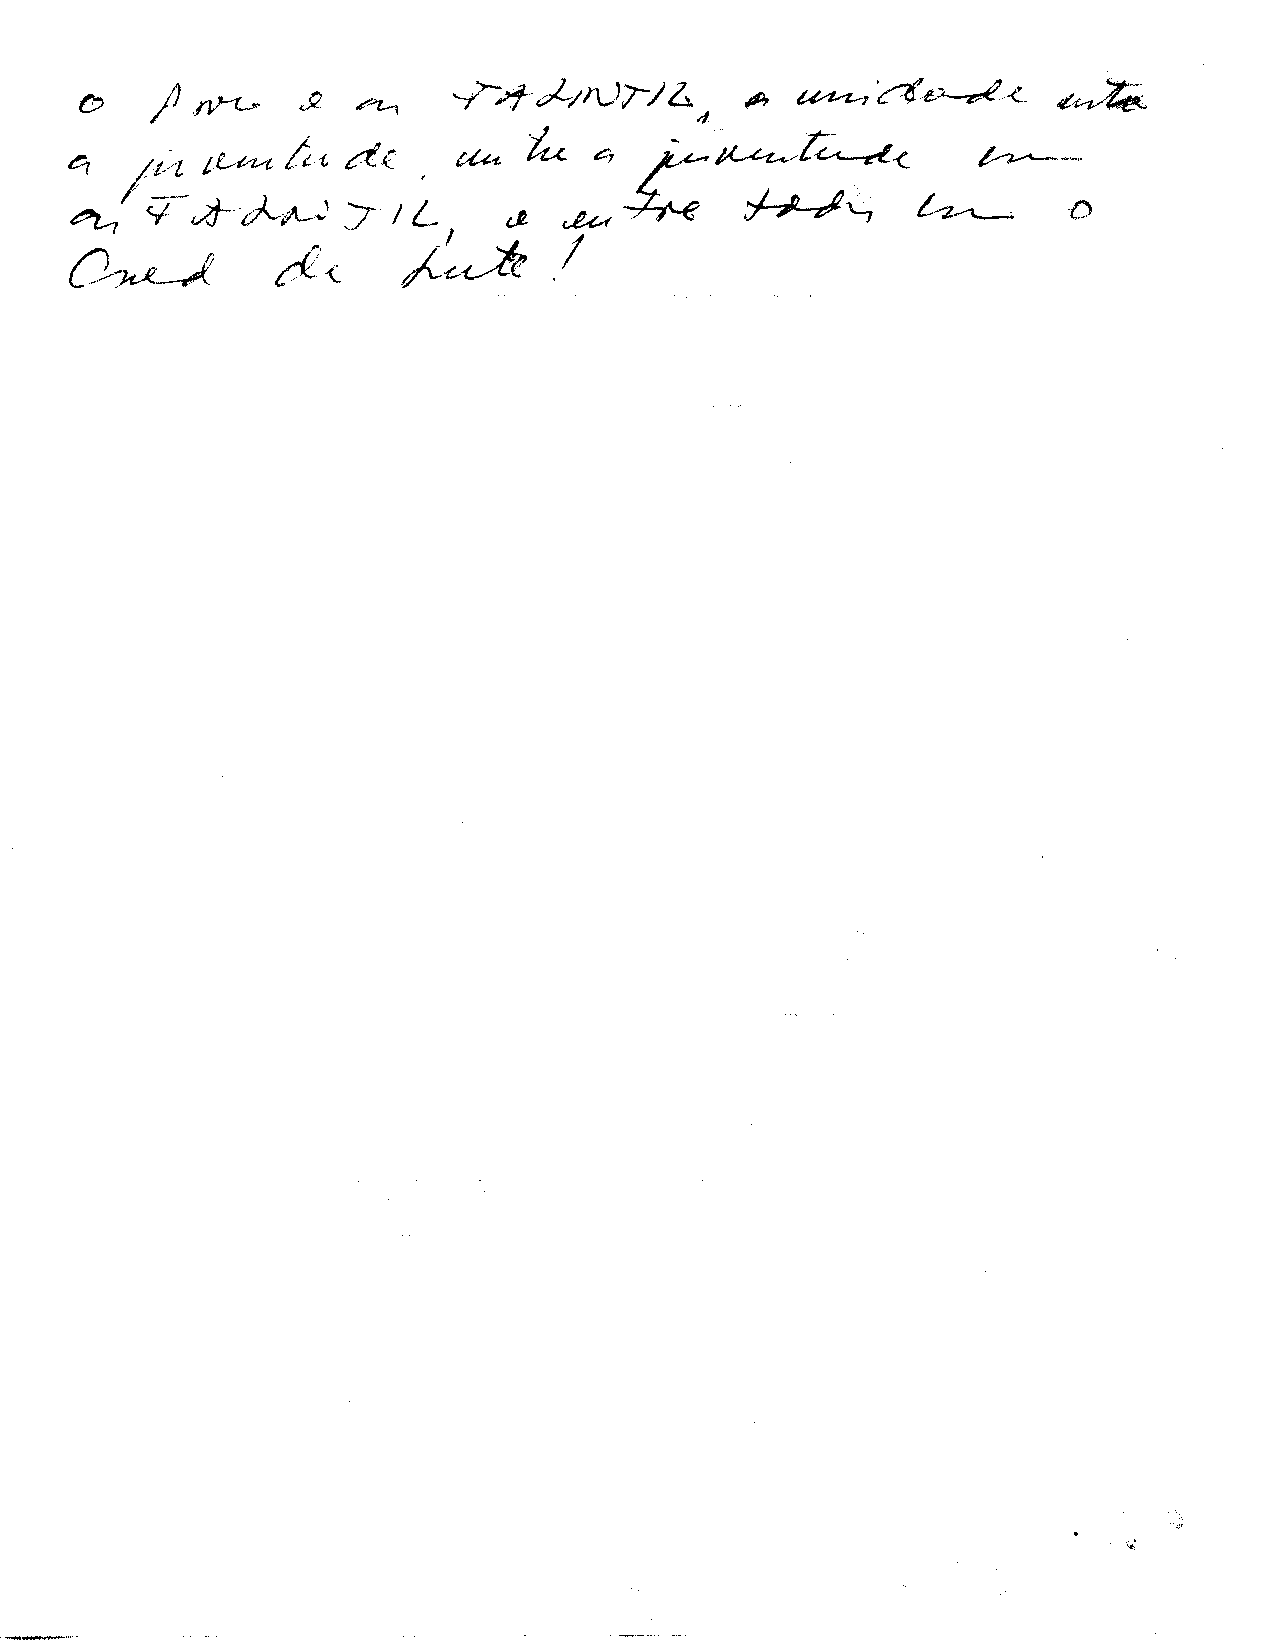 o povo e as FALINTIL, a unidade entre
a juventude, entre a juventude com
as FALINTIL, e entre todos com o
Cned de Luta!